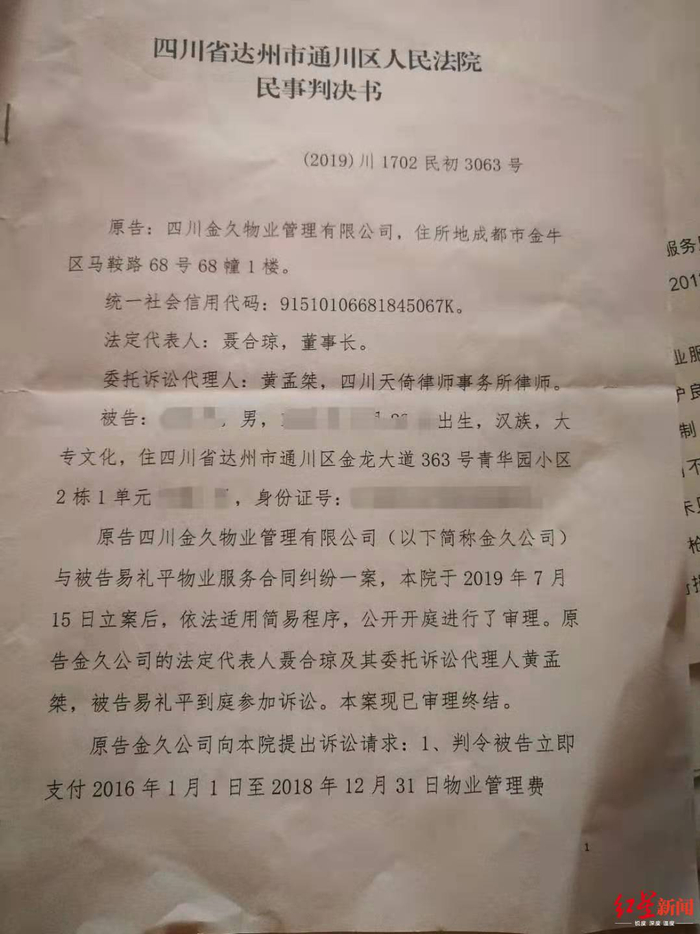 四川省达州市通川区人民法院
民事判决书
(2019)川1702民初3063号
原告：四川金久物业管理有限公司，住所地成都市金牛
区马鞍路68号68幢1楼。
统一社会信用代码：91510106681845067K。
法定代表人：聂合琼，董事长。
委托诉讼代理人：黄孟桀，四川天倚律师事务所律师。
被告： ，男， 出生，汉族，大
专文化，住四川省达州市通川区金龙大道363号青华园小区
2栋1单元 ，身份证号：
原告四川金久物业管理有限公司（以下简称金久公司）
与被告易礼平物业服务合同纠纷一案，本院于2019年7月
15日立案后，依法适用简易程序，公开开庭进行了审理。原
告金久公司的法定代表人聂合琼及其委托诉讼代理人黄孟
桀，被告易礼平到庭参加诉讼。本案现已审理终结。
原告金久公司向本院提出诉讼请求：1、判令被告立即
支付2016年1月1日至2018年12月31日物业管理费
1
服务
201
业服
护良
制
不
枪
红星新闻
锐度 深度 速度